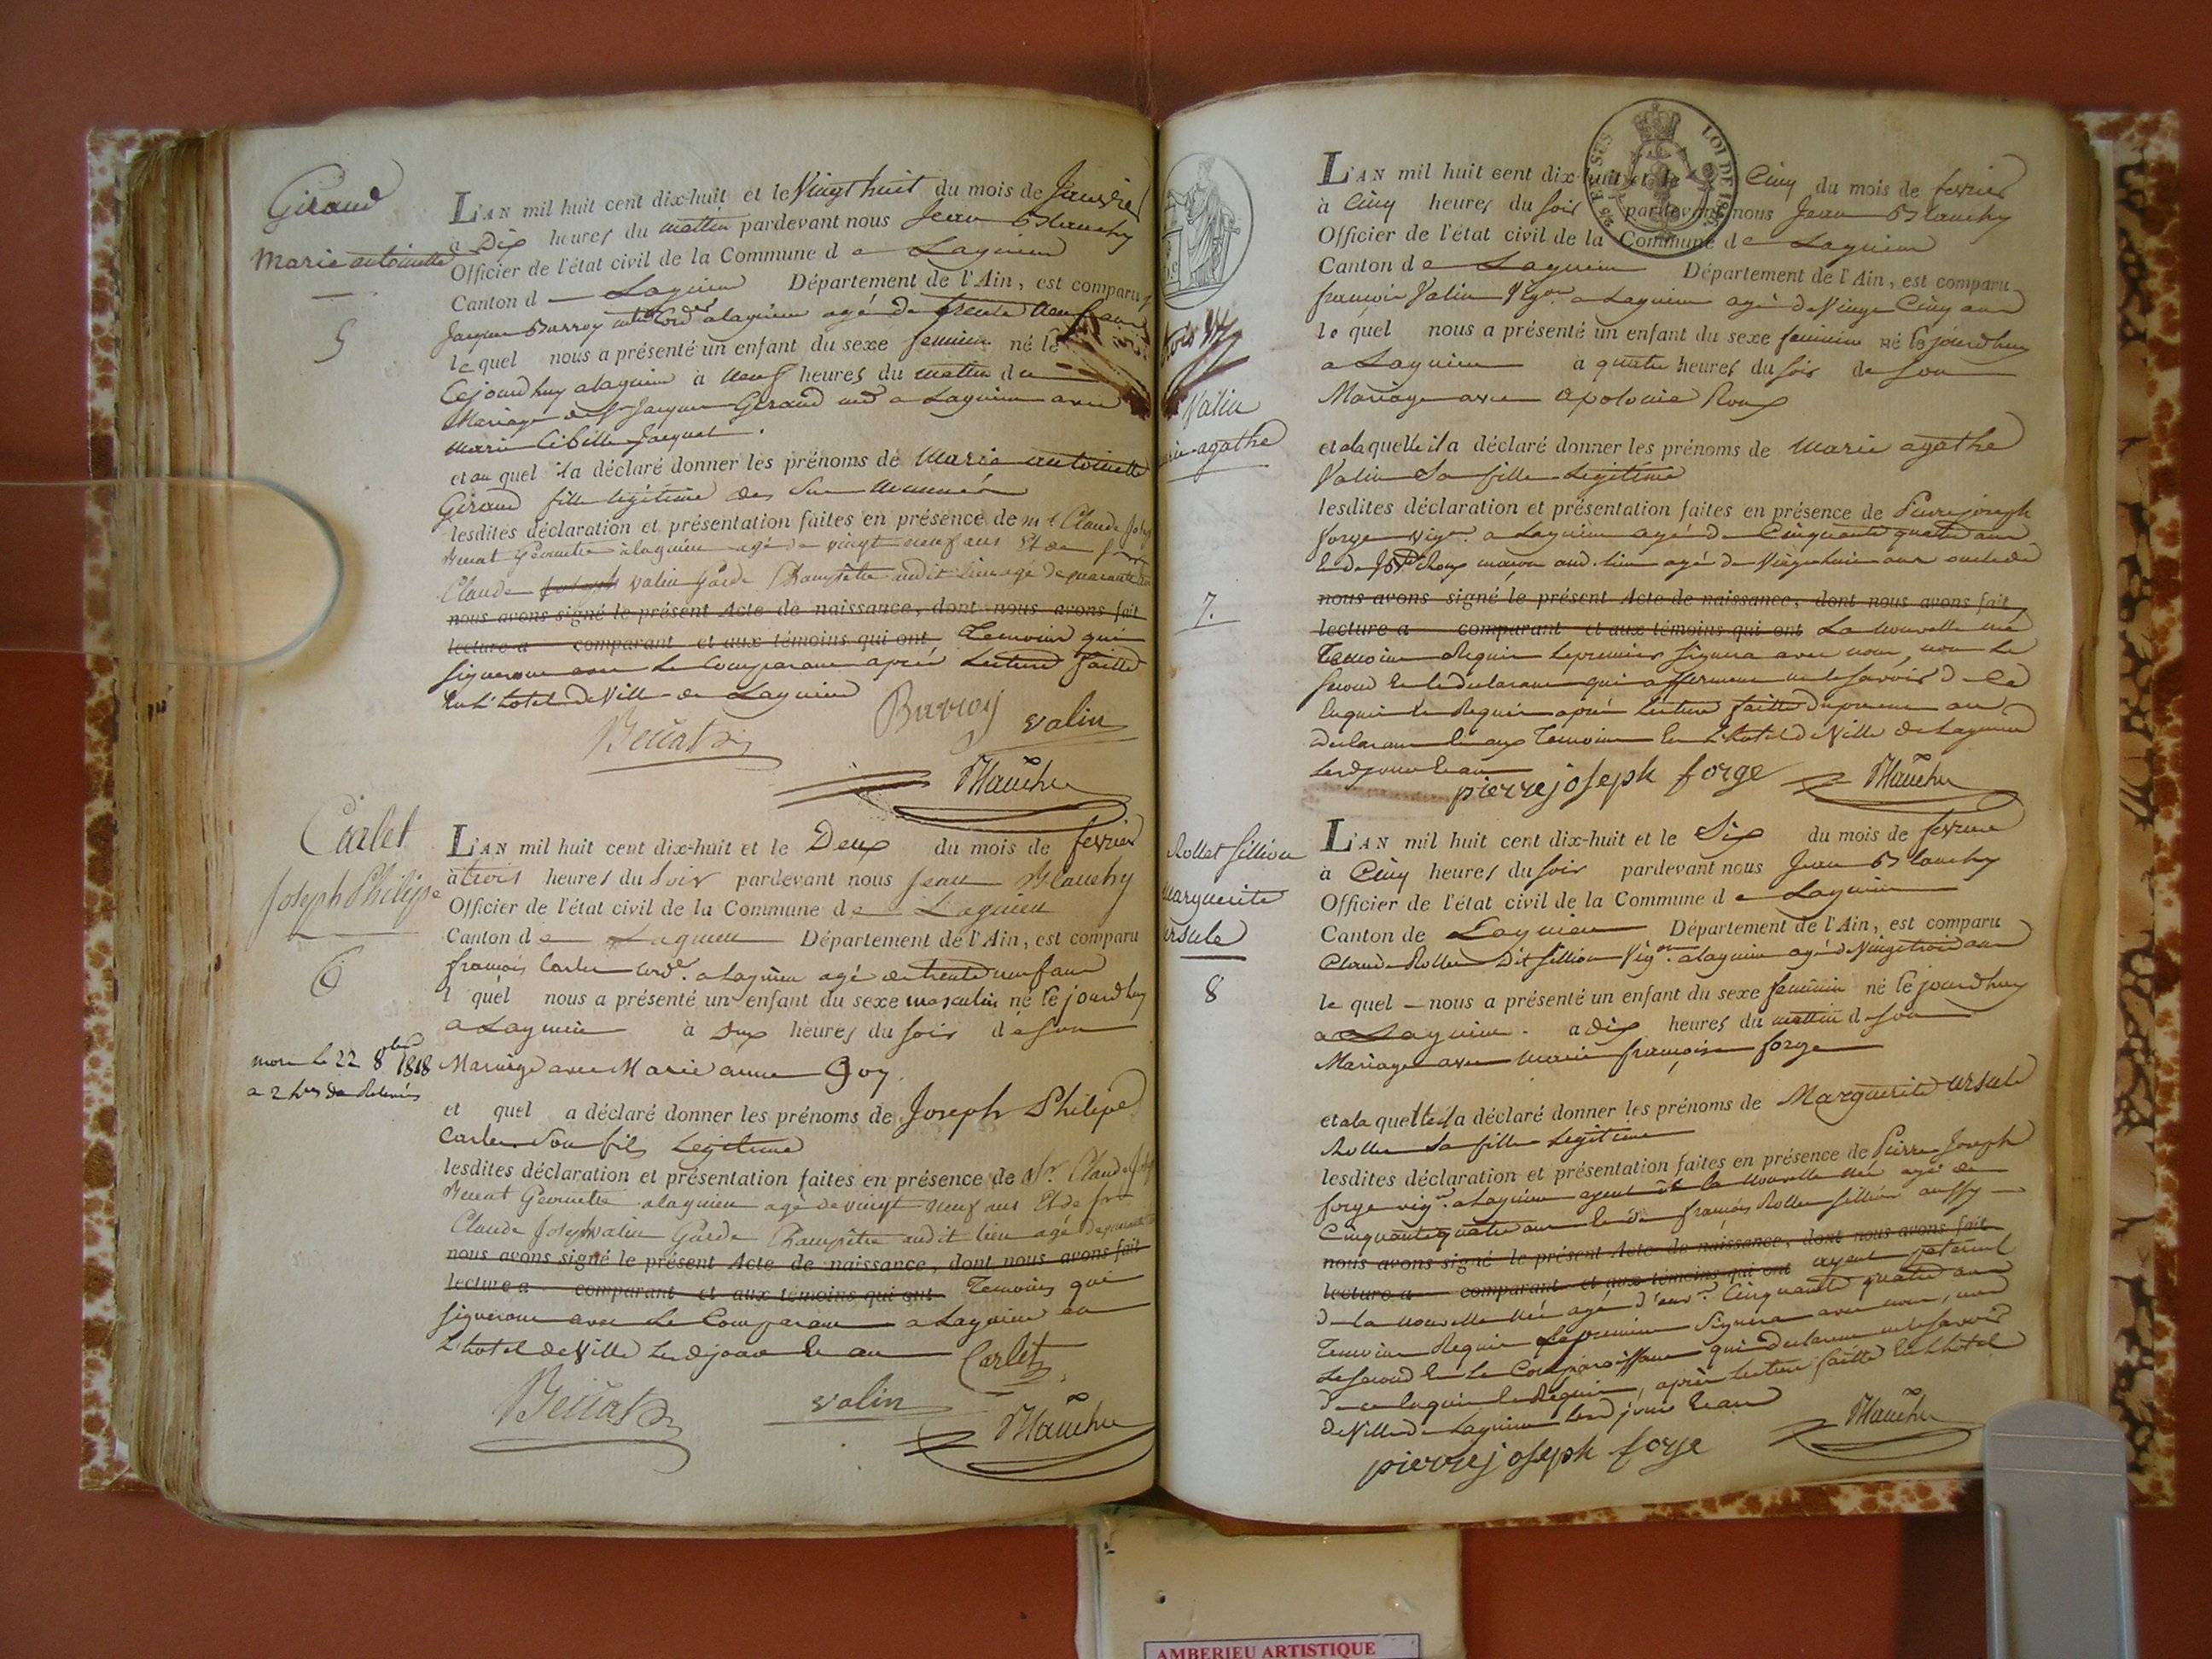 Giraud
Marie antoinette
5
L'AN mil huit cent dix-huit et le Vingt huit du mois de Janvier
à Dix heures du mattin pardevant nous Jean Blanchy
Officier de l'état civil de la Commune de Lagnieu
Canton d Lagnieu Département de l'Ain, est comparu
Jacques Barroy alagnieu agé de trente neuf ans
le quel nous a présenté un enfant du sexe feminin né le
Cejourdhuy alagnieu à neuf heures du mattin du
Mariage de Sr Jacques Geraud a Lagnieu avec
Marie Cibille Jacquet.
et au quel il a déclaré donner les prénoms de Marie antoinette
Geraud fille legitime des Sus
lesdites déclaration et présentation faites en présence de mr Claude
Géometre alagnieu agé de vingt neuf ans Et de
Claude Joseph valin Garde Champêtre audit lieu agé de quarante
nous avons signé le présent Acte de naissance, dont nous avons fait
lecture a comparant et aux témoins qui ont Temoins qui
signeront avec Le Comparant aprés Lecture faitte
En L'hotel de Ville de Lagnieu
Barroy
valin
Blanchy
Carlet
Joseph Philipe
6
mort le 22 8bre 1818
a 2 hres de Relevée
L'AN mil huit cent dix-huit et le Deux du mois de fevrier
à trois heures du Soir pardevant nous Jean Blanchy
Officier de l'état civil de la Commune de Lagnieu
Canton de Lagnieu Département de l'Ain, est comparu
françois Carlet cordr. a Lagnieu agé de trente neuf ans
l quel nous a présenté un enfant du sexe masculin né le jourdhuy
a Lagnieu à Deux heures du soir de son
Mariage avec Marie anne Goy
et quel a déclaré donner les prénoms de Joseph Philipe
Carlet Son fils Legitime
lesdites déclaration et présentation faites en présence de Sr. Claude
Géometre alagnieu agé de vingt neuf ans Et de
Claude Joseph valin Garde Champêtre audit lieu agé de quarante
nous avons signé le présent Acte de naissance, dont nous avons fait
lecture a comparant et aux témoins qui ont Temoins qui
signeront avec Le Comparant a Lagnieu en
L'hotel de Ville Lesd jour et an
Carlet
valin
Blanchy
Valin
agathe
7.
L'AN mil huit cent dix-huit et le Cinq du mois de fevrier
à Cinq heures du soir pardevant nous Jean Blanchy
Officier de l'état civil de la Commune de Lagnieu
Canton de Lagnieu Département de l'Ain, est comparu
françois Valin Vigon a Lagnieu agé de Vingt Cinq ans
le quel nous a présenté un enfant du sexe feminin né le jourdhuy
a Lagnieu à quatre heures du soir de son
Mariage avec apolonie Roux
et a la quelle il a déclaré donner les prénoms de Marie agathe
Valin Sa fille Legitime
lesdites déclaration et présentation faites en présence de Pierre joseph
forge vigon. a Lagnieu agé de Cinquante quatre ans
Et de Roux maçon aud. lieu agé de Vingt huit ans oncle de
nous avons signé le présent Acte de naissance, dont nous avons fait
lecture a comparant et aux témoins qui ont La nouvelle née
Temoins Requis Le premier signera avec nous, non Le
second Et le declarant qui affirment ne le savoir de ce
Enquis et Requis aprés Lecture faitte du present au
declarant Et aux Temoins En L'hotel de Ville de Lagnieu
Lesd jour Et an
pierre joseph forge
Blanchy
Rollet Sillion
Marguerite
ursule
8
L'AN mil huit cent dix-huit et le Six du mois de fevrier
à Cinq heures du soir pardevant nous Jean Blanchy
Officier de l'état civil de la Commune de Lagnieu
Canton de Lagnieu Département de l'Ain, est comparu
Claude Rollet Dit Sillion Vigon. alagnieu agé de Vingt trois ans
le quel nous a présenté un enfant du sexe feminin né le jourdhuy
a Lagnieu. a dix heures du mattin de son
Mariage avec Marie françoise forge
et a la quelle il a déclaré donner les prénoms de Marguerite ursule
Rollet Sa fille Legitime
lesdites déclaration et présentation faites en présence de Pierre Joseph
forge vigon. a Lagnieu ayeul de la nouvelle née agé de
Cinquante quatre ans Et de françois Rollet Sillion aussy
nous avons signé le présent Acte de naissance, dont nous avons fait
lecture a comparant et aux témoins qui ont ayeul paternel
de la nouvelle née agé d'envn. Cinquante quatre ans
Temoins Requis Le premier Signera avec nous, non
Le second Et Le Comparaissant qui declarent ne le savoir
de ce Enquis Et Requis, aprés Lecture faitte En L'hotel
de Ville de Lagnieu Lesd jour Et an
pierre joseph forge
Blanchy
AMBERIEU ARTISTIQUE